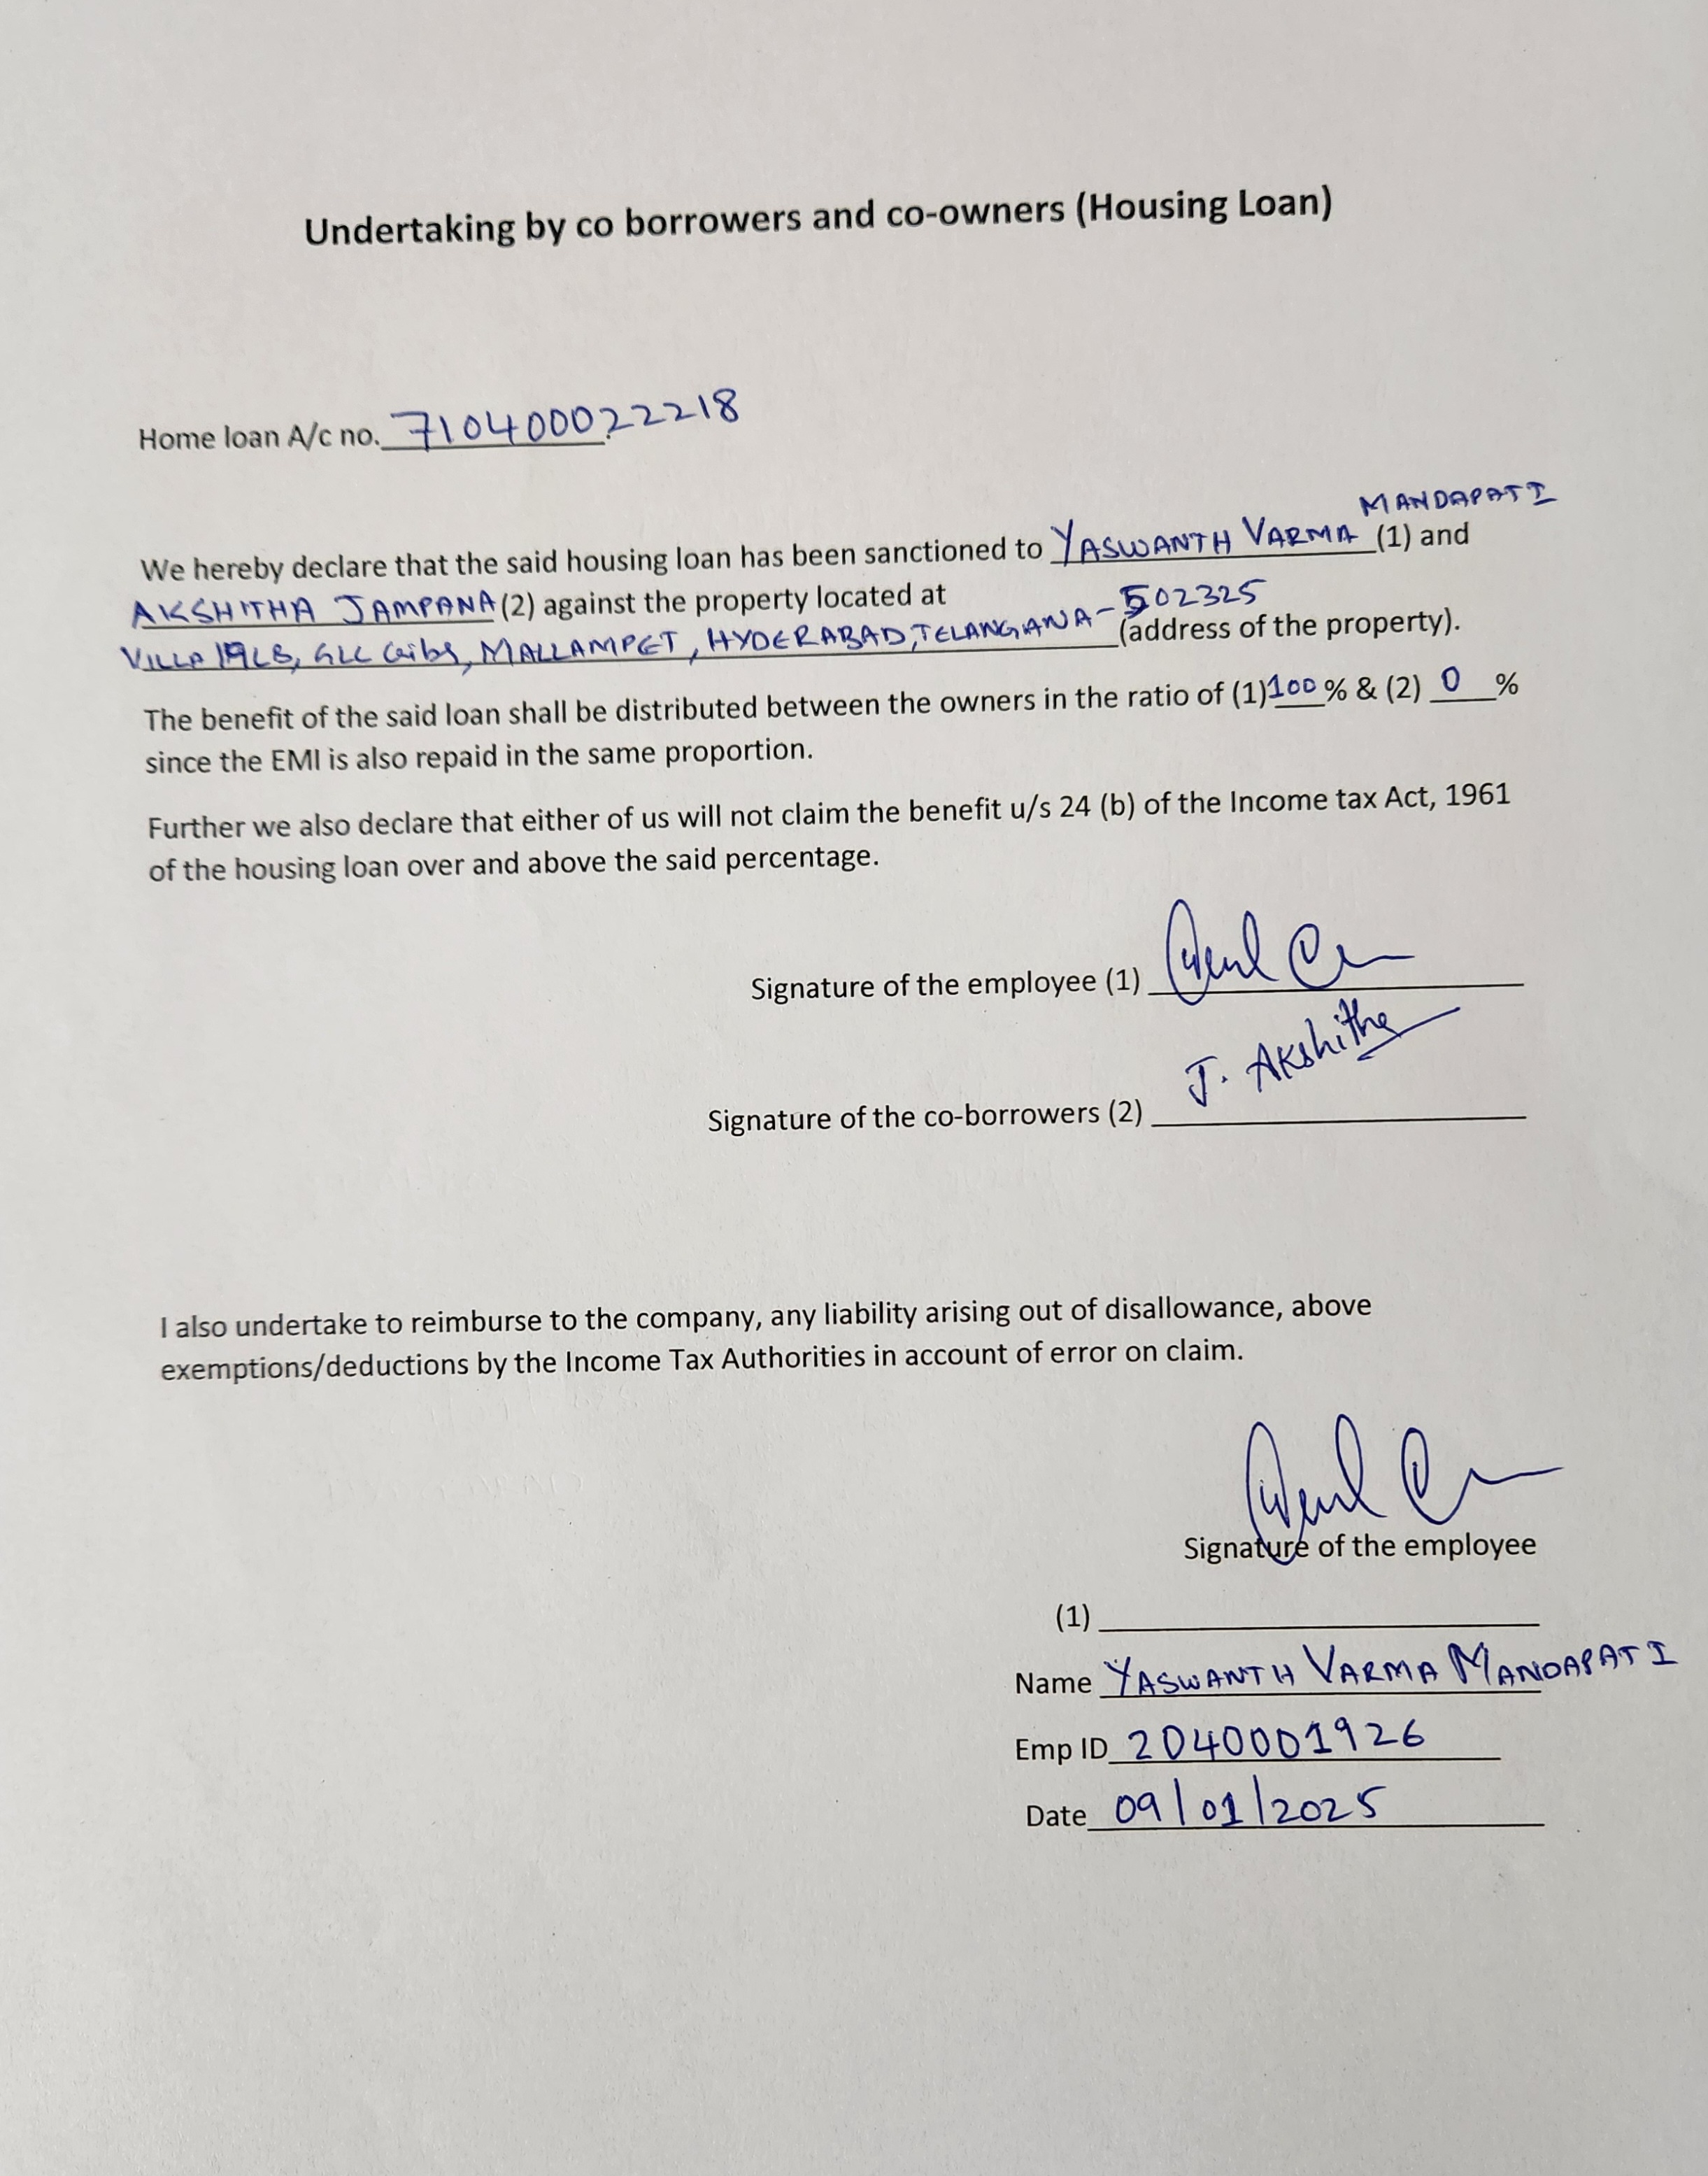 Undertaking by co borrowers and co-owners (Housing Loan)
Home loan A/c no. 710400022218
MANDAPATI
We hereby declare that the said housing loan has been sanctioned to YASWANTH VARMA (1) and
AKSHITHA JAMPANA (2) against the property located at
VILLA 19LB, GLC Cribs, MALLAMPET, HYDERABAD, TELANGANA - 502325 (address of the property).
The benefit of the said loan shall be distributed between the owners in the ratio of (1) 100 % & (2) 0 %
since the EMI is also repaid in the same proportion.
Further we also declare that either of us will not claim the benefit u/s 24 (b) of the Income tax Act, 1961
of the housing loan over and above the said percentage.
Signature of the employee (1)
J. Akshitha
Signature of the co-borrowers (2)
I also undertake to reimburse to the company, any liability arising out of disallowance, above
exemptions/deductions by the Income Tax Authorities in account of error on claim.
Signature of the employee
(1)
Name YASWANTH VARMA MANDAPATI
Emp ID 2040001926
Date 09/01/2025